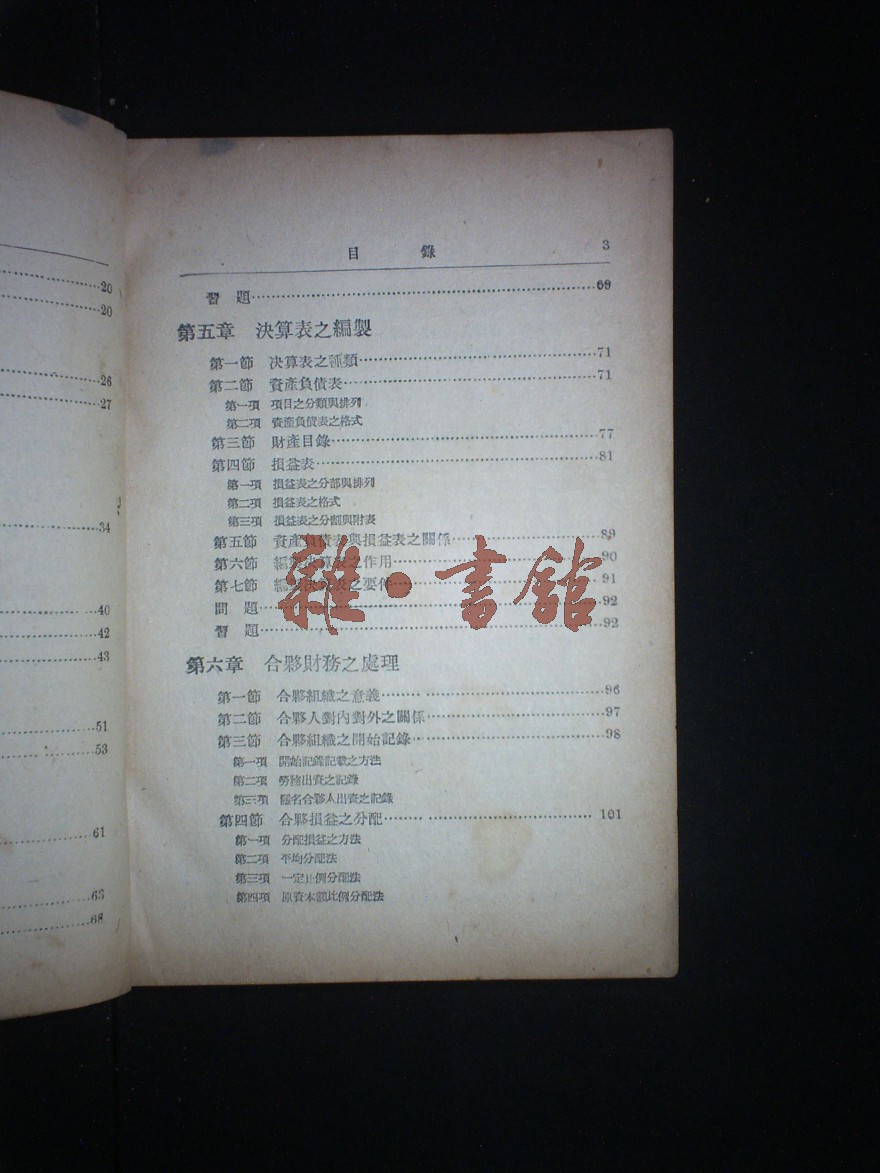 20
20
26
27
34
40
42
43
51
53
61
65
68
目 錄 3
習 題 69
第五章 決算表之編製
第一節 決算表之種類 71
第二節 資產負債表 71
第一項 項目之分類與排列
第二項 資產負債表之格式
第三節 財產目錄 77
第四節 損益表 81
第一項 損益表之分部與排列
第二項 損益表之格式
第三項 損益表之分割與附表
第五節 資產負債表與損益表之關係 89
第六節 編製決算表之作用 90
第七節 編製決算表之要件 91
問 題 92
習 題 92
雜·書館
第六章 合夥財務之處理
第一節 合夥組織之意義 96
第二節 合夥人對內對外之關係 97
第三節 合夥組織之開始記錄 98
第一項 開始記錄記載之方法
第二項 勞務出資之記錄
第三項 隱名合夥人出資之記錄
第四節 合夥損益之分配 101
第一項 分配損益之方法
第二項 平均分配法
第三項 一定比例分配法
第四項 原資本額比例分配法